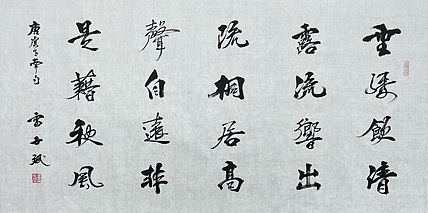 垂緌飲清
露流響出
疏桐居高
聲自遠非
是藉秋風
唐虞世南句